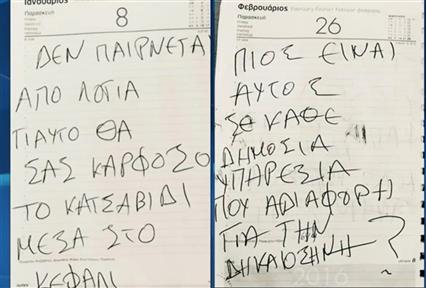 Ιανουάριος
Παρασκευή
8
ΔΕΝ ΠΑΙΡΝΕΤΑΙ
ΑΠΟ ΛΟΓΙΑ
ΓΙΑΥΤΟ ΘΑ
ΣΑΣ ΚΑΡΦΟΣΟ
ΤΟ ΚΑΤΣΑΒΙΔΙ
ΜΕΣΑ ΣΤΟ
ΚΕΦΑΛΙ
Φεβρουάριος
Παρασκευή
26
ΠΙΟΣ ΕΙΝΑΙ
ΑΥΤΟΣ
ΣΕ ΚΑΘΕ
ΔΗΜΟΣΙΑ
ΥΠΗΡΕΣΙΑ
ΠΟΥ ΑΔΙΑΦΟΡΗ
ΓΙΑ ΤΗΝ
ΔΗΚΑΙΟΣΗΝΗ?
2016